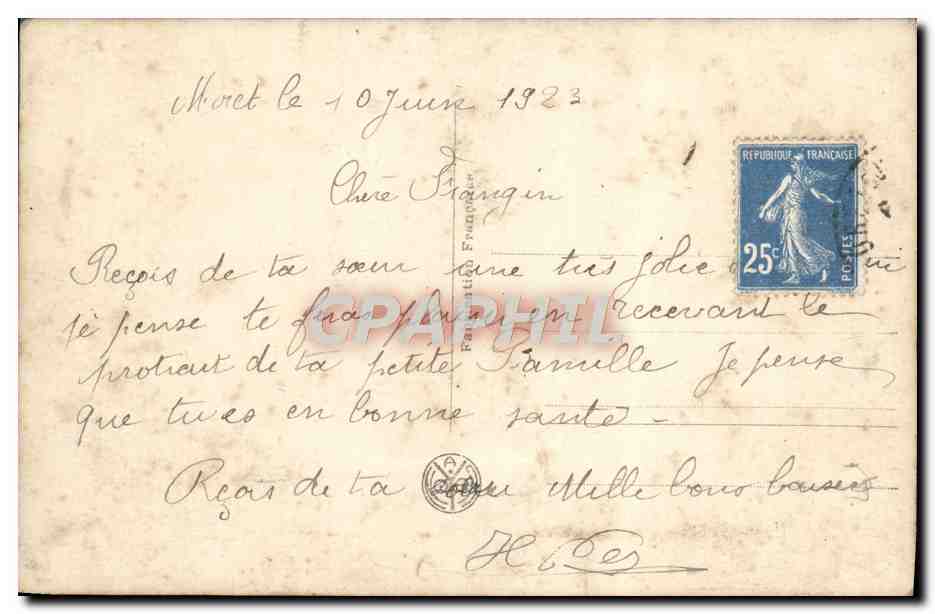 Moret le 10 Juin 1923
REPUBLIQUE FRANÇAISE
25c
POSTES
Chère Frangin
Fabrication Française
Reçois de ta sœur une tres jolie
je pense te feras plaisir en recevant le
protrait de ta petite Famille Je pense
que tu es en bonne santé -
CPAPHIL
Reçois de ta sœur Mille bons baisers